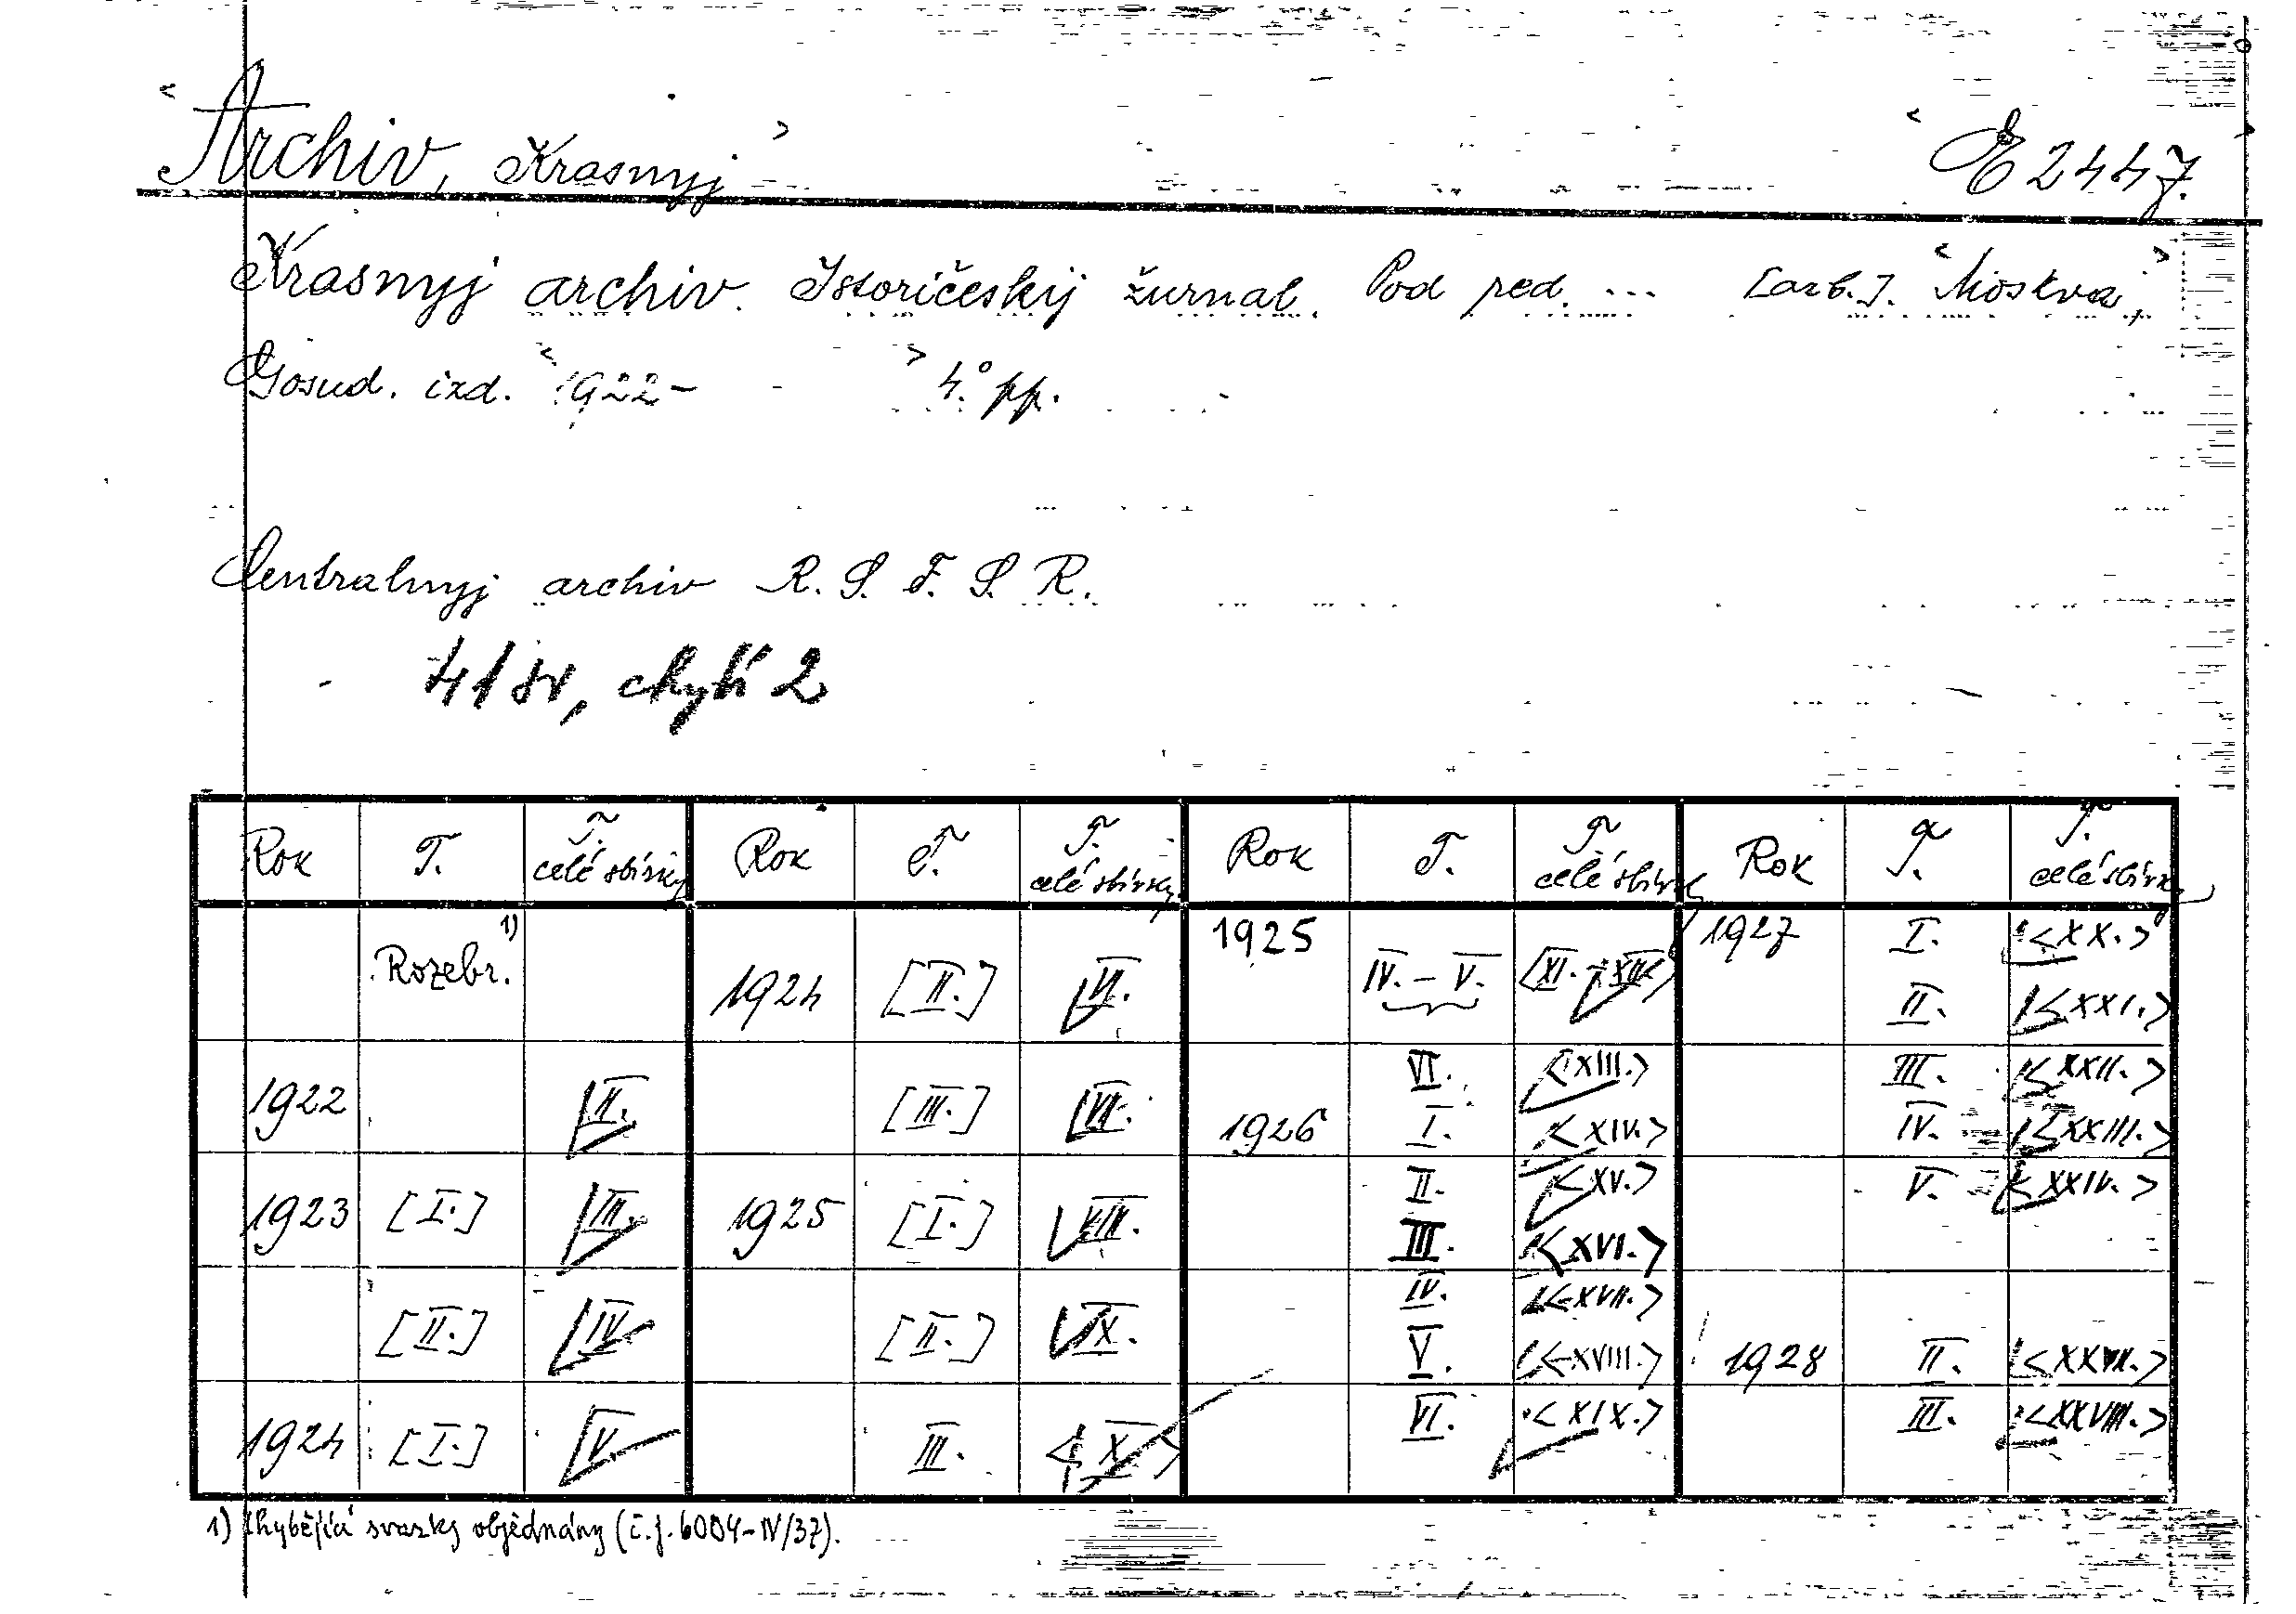 <Archiv, Krasnyj> <E 2447.>
Krasnyj archiv. Istoričeskij žurnal. Pod red. ... [azb.]. <Moskva,>
Gosud. izd. <1922- > 4.° pp.
Centralnyj archiv R. S. F. S. R.
41 sv, chybí 2
Rok T. T. celé sbírky Rok T. T. celé sbírky Rok T. T. celé sbírky Rok T. T. celé sbírky
Rozebr. 1) 1924 [II.] VI. 1925 IV. - V. <XI. - XII.> 1927 I. <XX.>
II. <XXI.>
1922 II. [III.] VII. VI. <XIII.> III. <XXII.>
1926 I. <XIV.> IV. <XXIII.>
1923 [I.] III. 1925 [I.] VIII. II. <XV.> V. <XXIV.>
III. <XVI.>
[II.] IV. [II.] IX. IV. <XVII.>
V. <XVIII.> 1928 II. <XXVII.>
1924 [I.] V. III. <X.> VI. <XIX.> III. <XXVIII.>
1) Chybějící svazky objednány (č.j. 6004-IV/37).